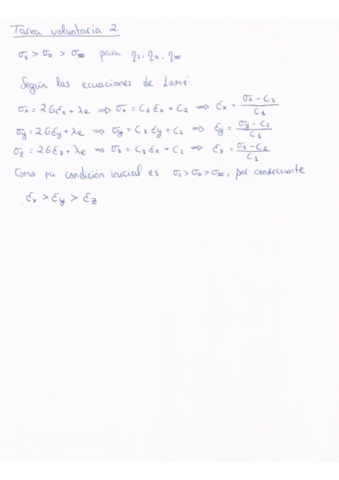 Tarea voluntaria 2
σ₁ > σ₂ > σ_III para η_I, η_II, η_III
Según las ecuaciones de Lamé:
σx = 2Gεx + λe ⇒ σx = C₁εx + C₂ ⇒ εx = (σx - C₂)/C₁
σy = 2Gεy + λe ⇒ σy = C₁εy + C₂ ⇒ εy = (σy - C₂)/C₁
σz = 2Gεz + λe ⇒ σz = C₁εz + C₂ ⇒ εz = (σz - C₂)/C₁
Como mi condición inicial es σ₁ > σ₂ > σ_III, por consecuente
εx > εy > εz